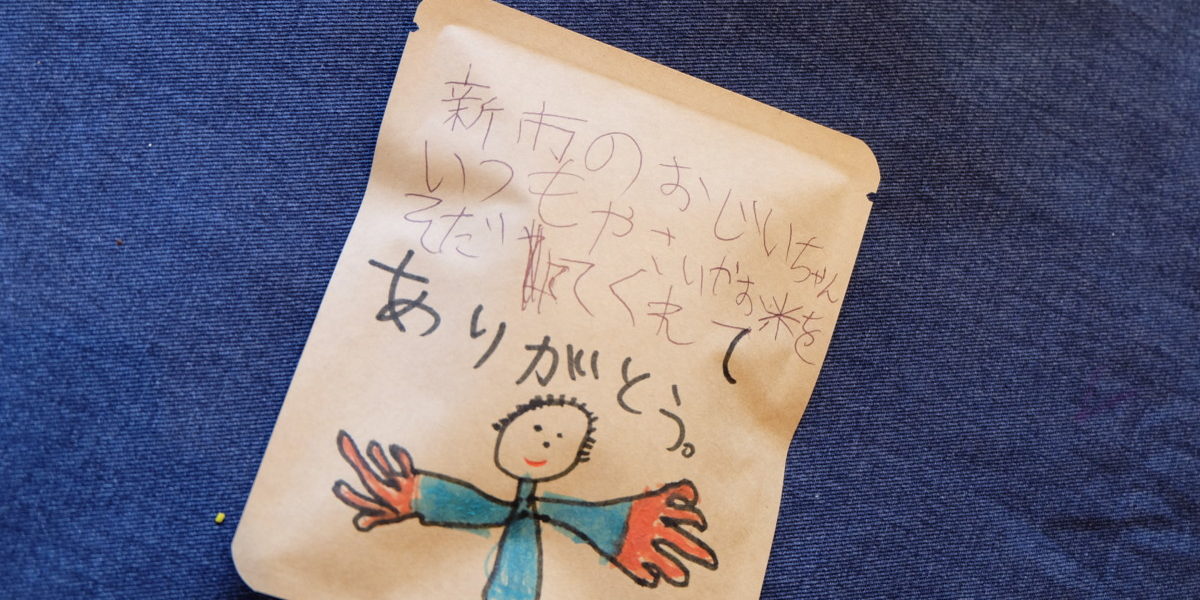 新市のおじいちゃん
いつもやさいかお米を
そだててくれて
ありがとう。